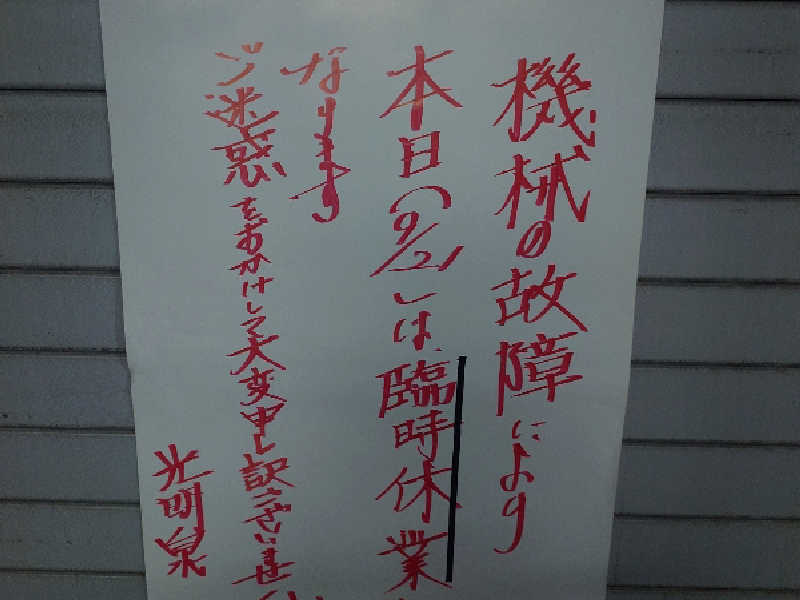 機械の故障により
本日(9/21)は、臨時休業
なります
ご迷惑をおかけして大変申し訳ございませ
光明泉